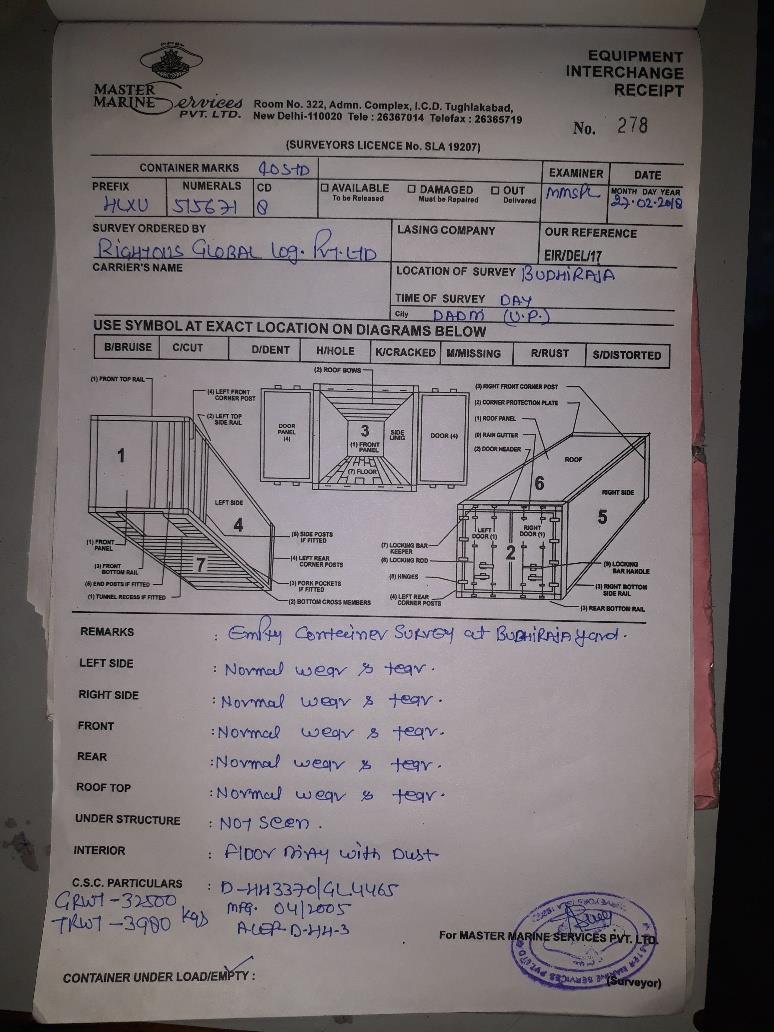 MASTER
MARINE Services
PVT. LTD.
Room No. 322, Admn. Complex, I.C.D. Tughlakabad,
New Delhi-110020 Tele : 26367014 Telefax : 26365719
EQUIPMENT
INTERCHANGE
RECEIPT
No. 278
(SURVEYORS LICENCE No. SLA 19207)
CONTAINER MARKS 40STD
EXAMINER
DATE
PREFIX
HLXU
NUMERALS
515671
CD
AVAILABLE
To be Released
DAMAGED
Must be Repaired
OUT
Delivered
MMSPL
MONTH DAY YEAR
27.02.2018
SURVEY ORDERED BY
RIGHTOUS GLOBAL Log. Pvt. LTD
LASING COMPANY
OUR REFERENCE
EIR/DEL/17
CARRIER'S NAME
LOCATION OF SURVEY BUDHIRAJA
TIME OF SURVEY DAY
City DADRI (U.P.)
USE SYMBOL AT EXACT LOCATION ON DIAGRAMS BELOW
B/BRUISE C/CUT D/DENT H/HOLE K/CRACKED M/MISSING R/RUST S/DISTORTED
(1) FRONT TOP RAIL
(4) LEFT FRONT
CORNER POST
(2) LEFT TOP
SIDE RAIL
1
LEFT SIDE
4
7
(1) FRONT
PANEL
(3) FRONT
BOTTOM RAIL
(6) END POSTS IF FITTED
(1) TUNNEL RECESS IF FITTED
(5) SIDE POSTS
IF FITTED
(4) LEFT REAR
CORNER POSTS
(3) FORK POCKETS
IF FITTED
(2) BOTTOM CROSS MEMBERS
(2) ROOF BOWS
DOOR
PANEL
(4)
3
(1) FRONT
PANEL
SIDE
LINIG
(7) FLOOR
DOOR (4)
(3) RIGHT FRONT CORNER POST
(2) CORNER PROTECTION PLATE
(1) ROOF PANEL
(9) RAIN GUTTER
(2) DOOR HEADER
ROOF
6
RIGHT SIDE
5
LEFT
DOOR (1)
RIGHT
DOOR (1)
2
(7) LOCKING BAR
KEEPER
(8) LOCKING ROD
(5) HINGES
(4) LEFT REAR
CORNER POSTS
(9) LOCKING
BAR HANDLE
(3) RIGHT BOTTOM
SIDE RAIL
(3) REAR BOTTOM RAIL
REMARKS : Empty Container SURVEY at BUDHIRAJA yard.
LEFT SIDE : Normal wear & tear.
RIGHT SIDE : Normal wear & tear.
FRONT : Normal wear & tear.
REAR : Normal wear & tear.
ROOF TOP : Normal wear & tear.
UNDER STRUCTURE : NOT Seen.
INTERIOR : Floor with Dust
C.S.C. PARTICULARS : D-HH3370/GL4465
GRWT-32500
MFG. 04/2005
TRWT-3980 Kgs
ACEP-D-HH-3
For MASTER MARINE SERVICES PVT. LTD.
CONTAINER UNDER LOAD/EMPTY :
(Surveyor)